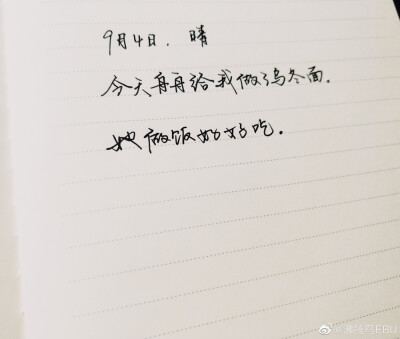 9月4日. 晴
今天舟舟给我做了乌冬面.
她做饭好好吃.